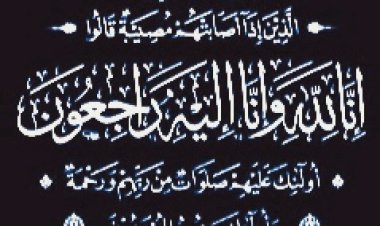 الَّذِينَ إِذَا أَصَابَتْهُمْ مُصِيبَةٌ قَالُوا
إِنَّا لِلَّهِ وَإِنَّا إِلَيْهِ رَاجِعُونَ
أُولَئِكَ عَلَيْهِمْ صَلَوَاتٌ مِنْ رَبِّهِمْ وَرَحْمَةٌ